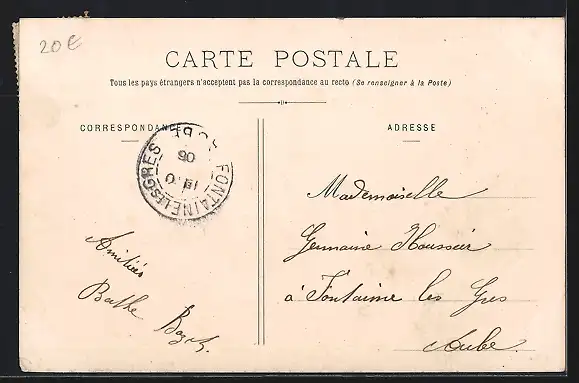 20€
CARTE POSTALE
Tous les pays étrangers n'acceptent pas la correspondance au recto (Se renseigner à la Poste)
CORRESPONDANCE
ADRESSE
FONTAINE-LES-GRÈS AUBE
06
Mademoiselle
Germaine
à Fontaine les Grès
Aube
Amitiés
Berthe